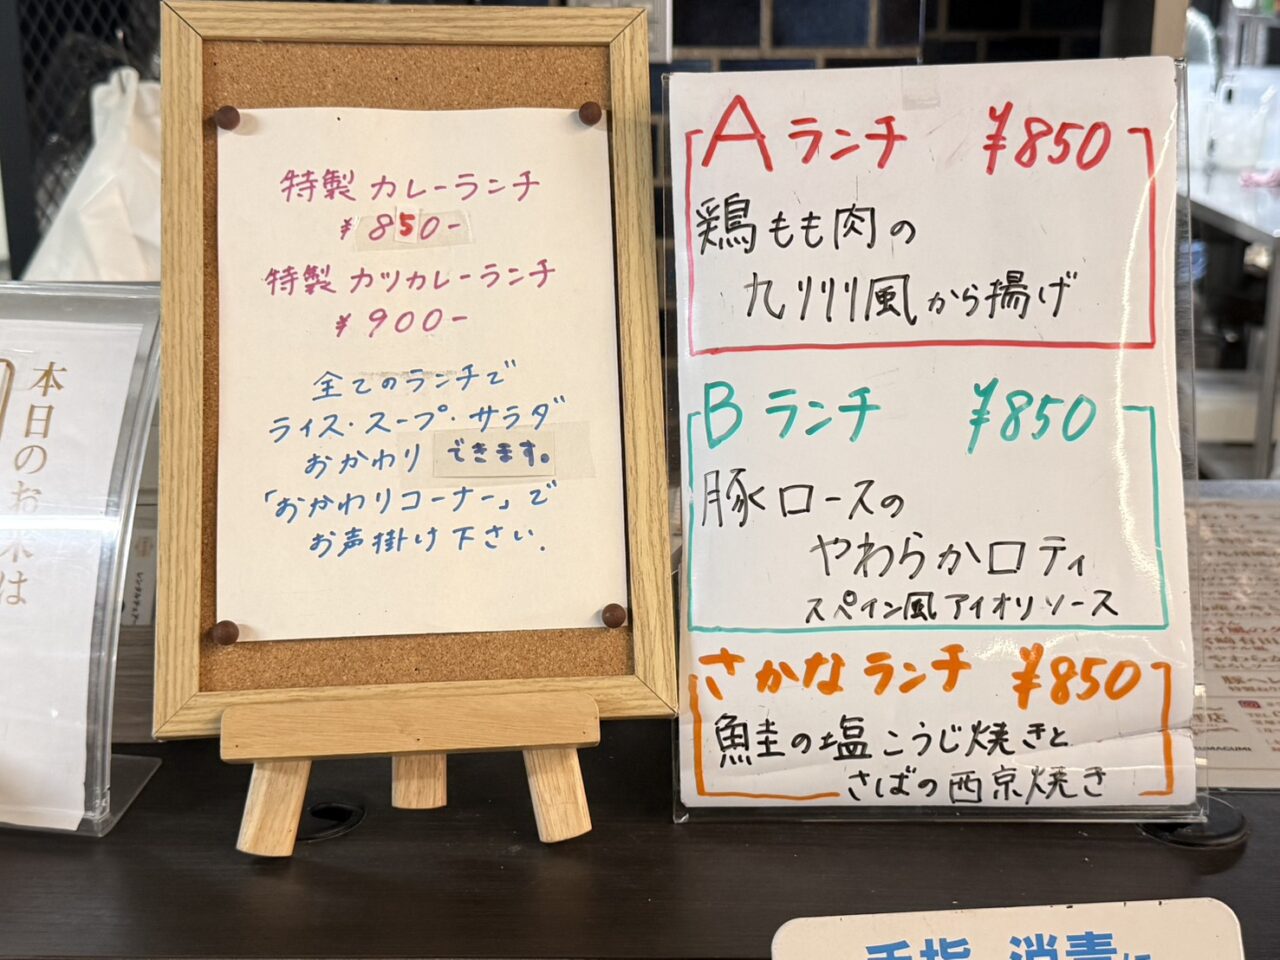 特製 カレーランチ
¥850-
特製 カツカレーランチ
¥900-
全てのランチで
ライス・スープ・サラダ
おかわり できます。
「おかわりコーナー」で
お声掛け下さい.
Aランチ ¥850
鶏もも肉の
九州風から揚げ
Bランチ ¥850
豚ロースの
やわらかロティ
スペイン風アイオリソース
さかなランチ ¥850
鮭の塩こうじ焼きと
さばの西京焼き
本日のお米は
手指 消毒に